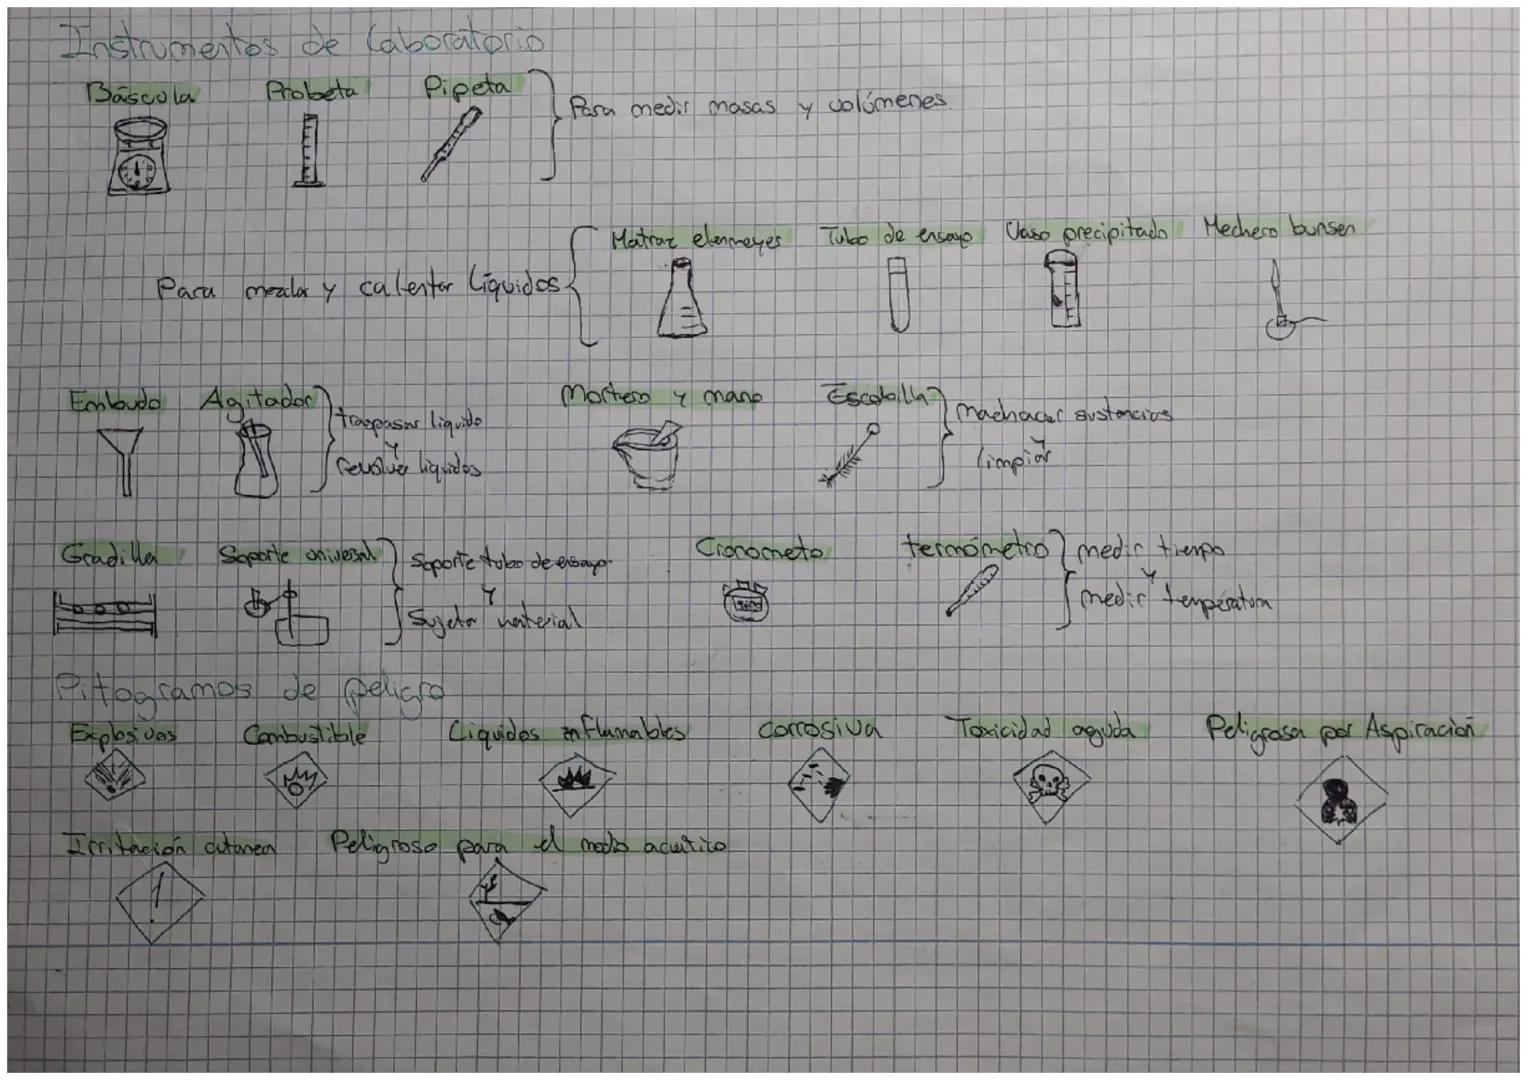 Instrumentos de laboratorio
Báscula Probeta Pipeta
Para medir masas y volúmenes
Matraz elenmeyes Tubo de ensayo Vaso precipitado Mechero bunsen
Para mezclar y calentar líquidos
Embudo Agitador Mortero y mano Escobilla
traspasar liquido
y
revolver liquidos
machacar sustancias
y
limpiar
Gradilla Soporte universal Cronometo termómetro
Soporte tubo de ensayo
y
Sujetar material
medir tiempo
y
medir temperatura
Pitogramos de peligro
Explosivos Combustible Liquidos inflamables corrosiva Toxicidad aguda Peligrosa por Aspiración
Irritación cutanea Peligroso para el medio acuatico